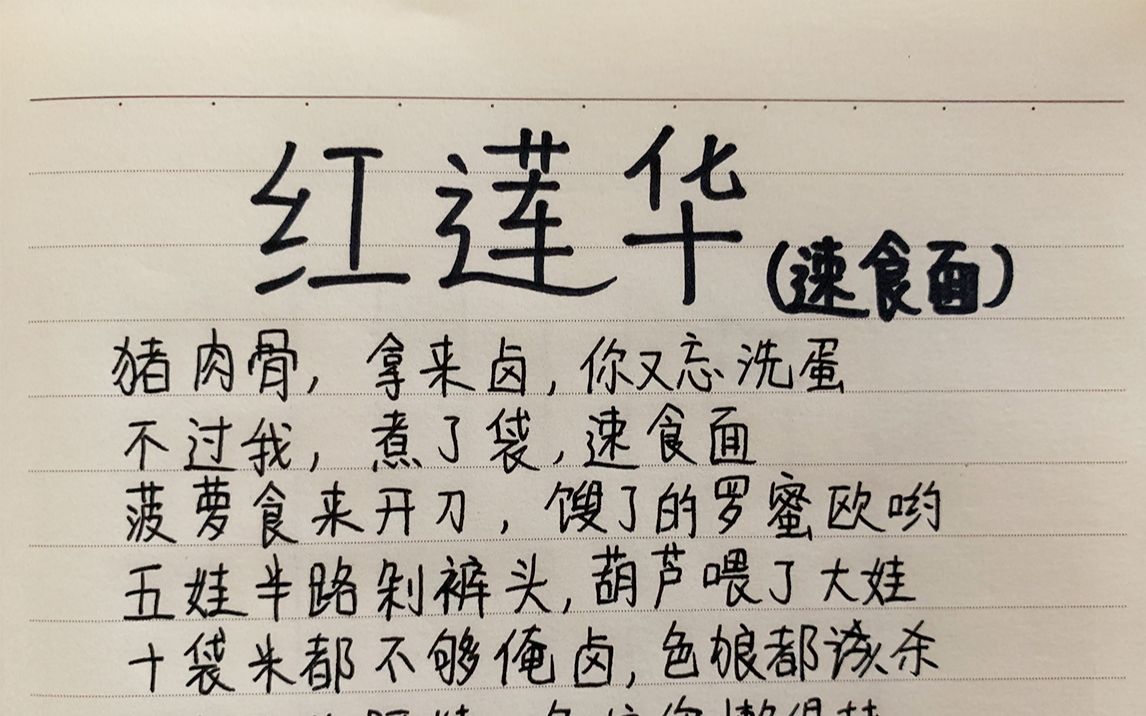 红莲华(速食面)
猪肉骨,拿来卤,你又忘洗蛋
不过我,煮了袋,速食面
菠萝食来开刀,馊了的罗蜜欧哟
五娃半路剁裤头,葫芦喂了大娃
十袋米都不够俺卤,色狼都该杀